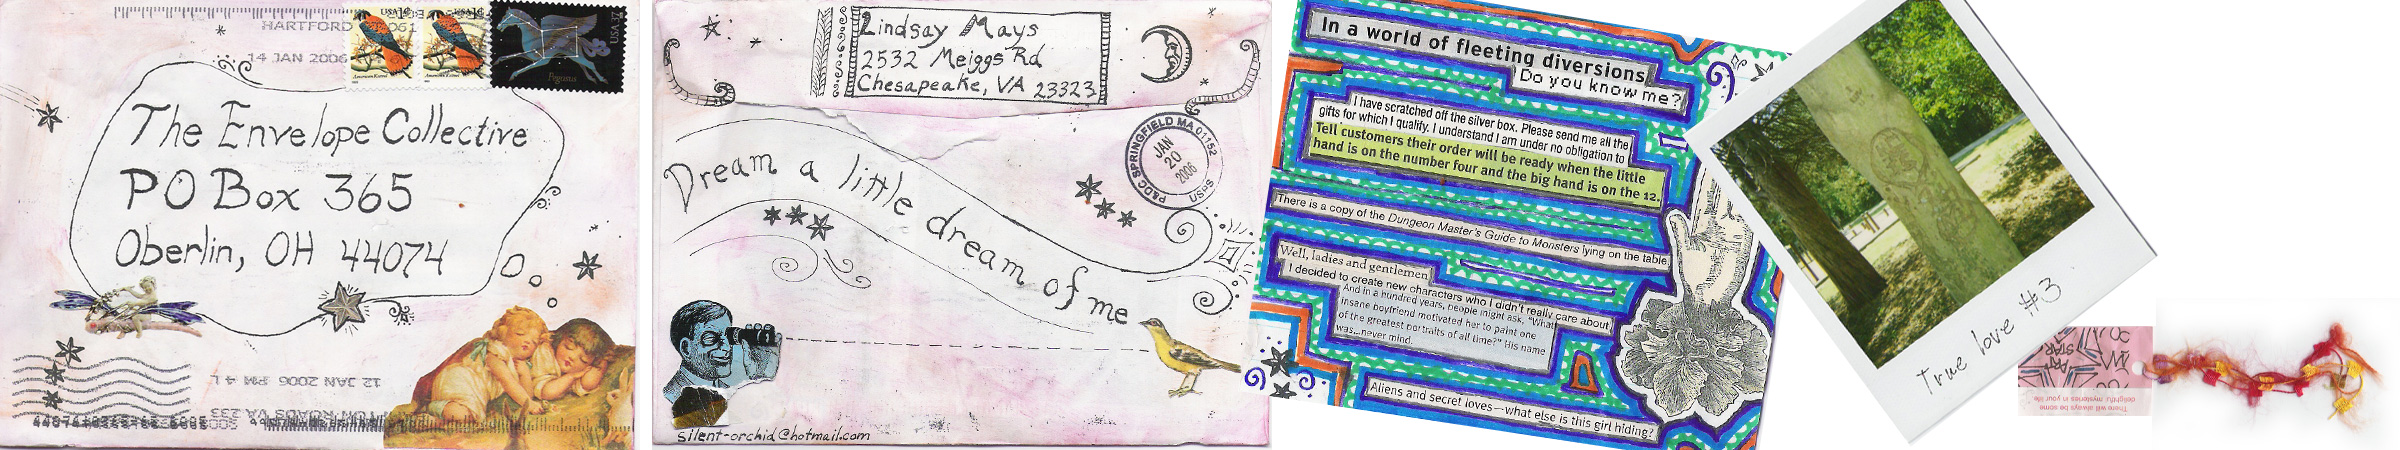 USA 1¢
USA 1¢
American Kestrel
American Kestrel
USA 37
Pegasus
HARTFORD 061
14 JAN 2006
The Envelope Collective
PO Box 365
Oberlin, OH 44074
12 JAN 2006 PM 4 L
Lindsay Mays
2532 Meiggs Rd
Chesapeake, VA 23323
P&DC SPRINGFIELD MA 01152
JAN
20
2006
USPS
Dream a little dream of me
silent-orchid@hotmail.com
In a world of fleeting diversions
Do you know me?
I have scratched off the silver box. Please send me all the
gifts for which I qualify. I understand I am under no obligation to
Tell customers their order will be ready when the little
hand is on the number four and the big hand is on the 12.
There is a copy of the Dungeon Master's Guide to Monsters lying on the table
Well, ladies and gentlemen
I decided to create new characters who I didn't really care about
And in a hundred years, people might ask, "What
insane boyfriend motivated her to paint one
of the greatest portraits of all time?" His name
was...never mind.
Aliens and secret loves—what else is this girl hiding?
True love #3
ART
STAR
There will always be some
delightful mysteries in your life